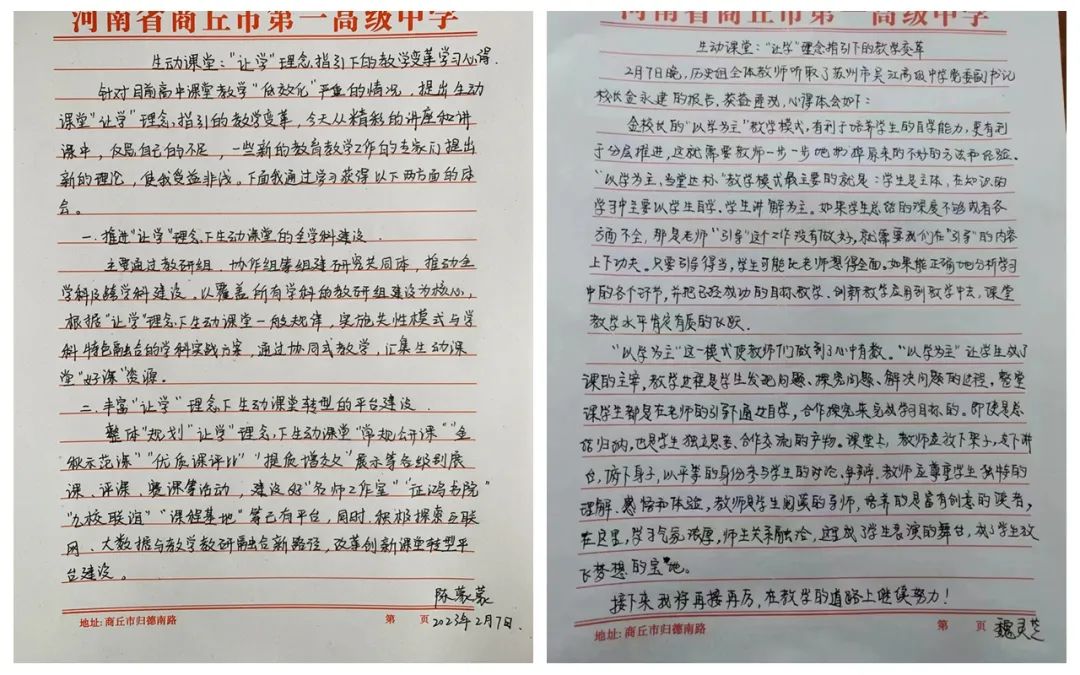 河南省商丘市第一高级中学
生动课堂："让学"理念指引下的教学变革学习心得.
针对目前高中课堂教学"低效化"严重的情况，提出生动
课堂"让学"理念指引的教学变革，今天从精彩的讲座和讲
课中，反思自己的不足，一些新的教育教学工作的专家们提出
新的理论，使我受益非浅。下面我通过学习获得以下两方面的体
会。
一.推进"让学"理念下生动课堂的全学科建设.
主要通过教研组、协作组等组建研究共同体，推动全
学科及跨学科建设。以覆盖所有学科的教研组建设为核心，
根据"让学"理念下生动课堂一般规律，实施共性模式与学
科特色融合的学科实践方案，通过协同式教学，汇集生动课
堂"好课"资源。
二.丰富"让学"理念下生动课堂转型的平台建设.
整体"规划"让学"理念下生动课堂"常规公开课""金
秋示范课""优质课评比""提质增效"展示等各级别展
课、评课、赛课等活动，建设好"名师工作室""征鸿书院"
"九校联谊""课程基地"等已有平台，同时，积极探索互联
网、大数据与教学教研融合新路径，改革创新课堂转型平
台建设。
陈蒙蒙
2023年2月7日.
地址: 商丘市归德南路 第 页
河南省商丘市第一高级中学
生动课堂："让学"理念指引下的教学变革
2月7日晚，历史组全体教师听取了苏州市吴江高级中学党委副书记
校长金永建的报告，获益匪浅，心得体会如下：
金校长的"以学为主"教学模式，有利于培养学生的自学能力，更有利
于分层推进，这就需要教师一步一步地抛掉原来的不好的方法和经验。
"以学为主、当堂达标"教学模式最主要的就是：学生是主体，在知识的
学习中主要以学生自学、学生讲解为主。如果学生总结的深度不够或者各
方面不全，那是老师"引导"这个工作没有做好，就需要我们在"引导"的内容
上下功夫。只要引导得当，学生可能比老师想得全面。如果能正确地分析学习
中的各个环节，并把已经成功的目标教学、创新教学应用到教学中去，课堂
教学水平肯定有质的飞跃.
"以学为主"这一模式使教师们做到了心中有教。"以学为主"让学生成了
课的主宰，教学过程是学生发现问题、探究问题、解决问题的过程，整堂
课学生都是在老师的引导下通过自学，合作探究来完成学习目标的。即使是总
结归纳，也是学生独立思考、合作交流的产物。课堂上，教师应放下架子，走下讲
台，俯下身子，以平等的身份参与学生的讨论、争辩.教师应尊重学生独特的
理解、感悟和体验，教师是学生阅读的导师，培养的是富有创意的读者，
在这里，学习气氛浓厚，师生关系融洽，这里成了学生表演的舞台，成了学生放
飞梦想的宝地。
接下来我将再接再厉，在教学的道路上继续努力！
地址: 商丘市归德南路 第 页
魏灵芝